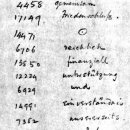 4458 gemeinsam
17149 Friedensschluss.
14471 ⊙
6706 reichlich
13850 finanziell
12224 unterstützung
6929 und
14991 einverständnis
7382 unsererseits.